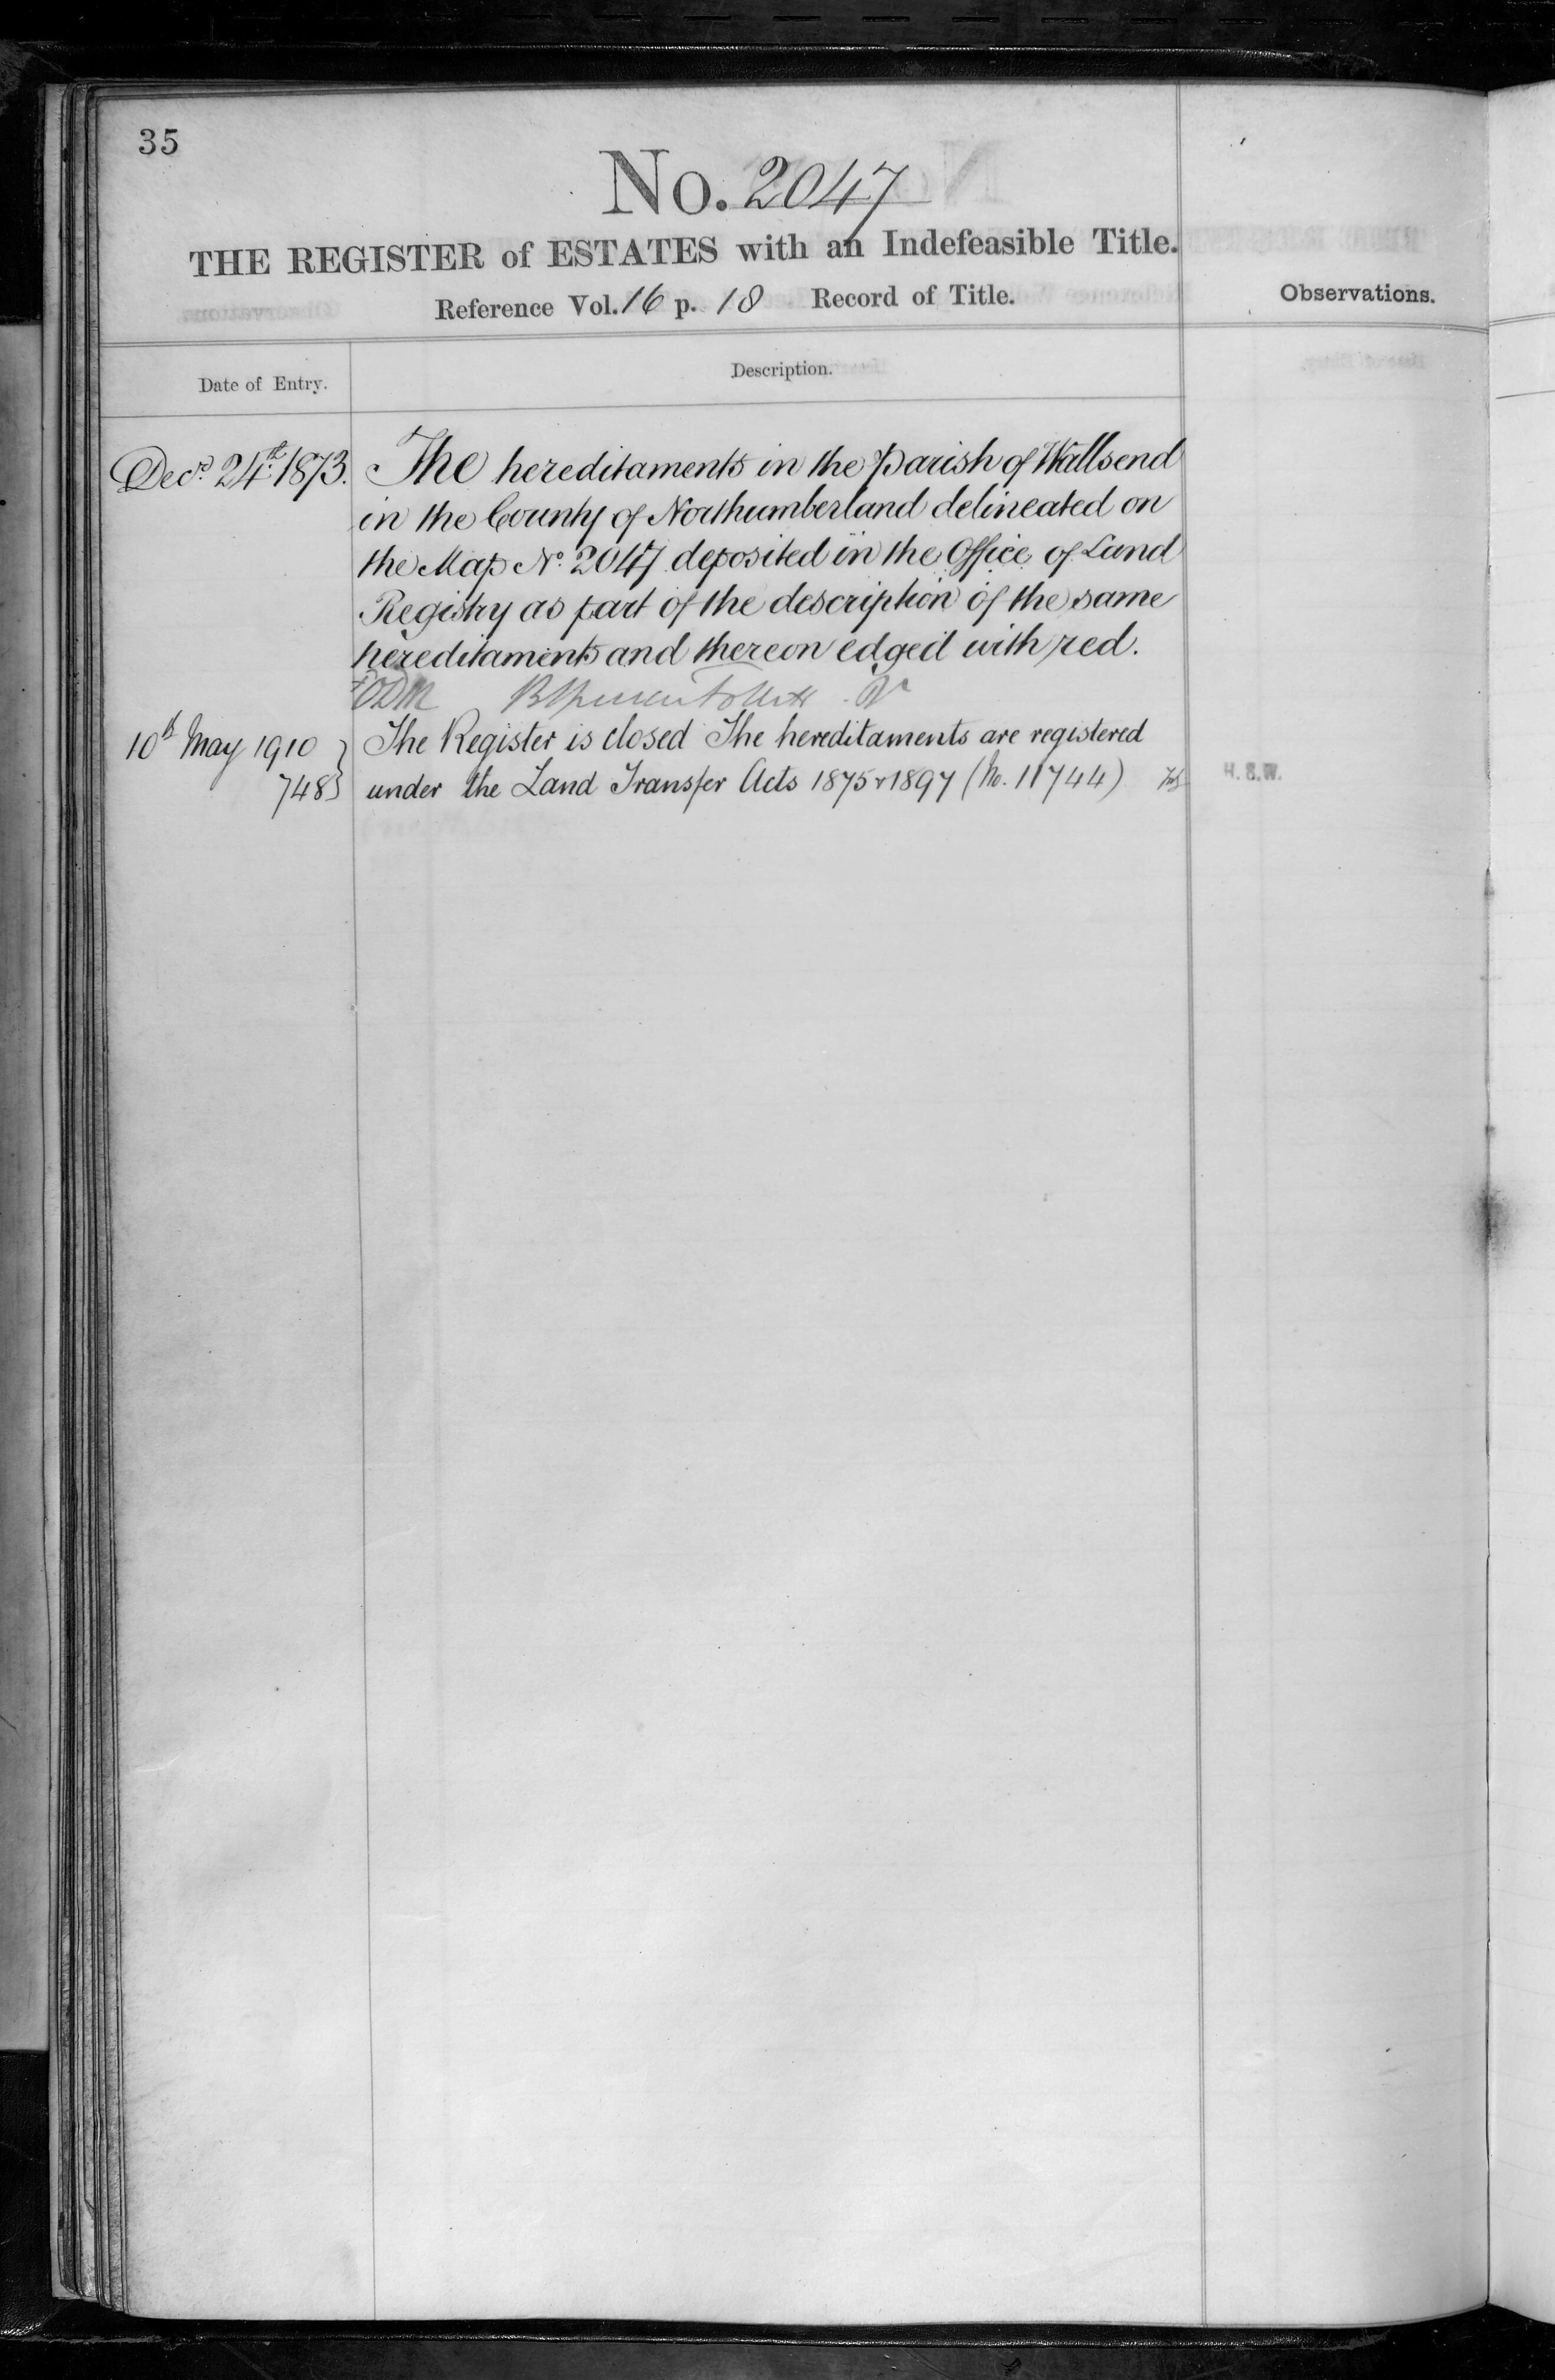 35
No. 2047
THE REGISTER of ESTATES with an Indefeasible Title.
Reference Vol. 16 p. 18 Record of Title.
Observations.
Date of Entry.
Description.
Decr. 24th. 1873. The hereditaments in the Parish of Wallsend
in the County of Northumberland delineated on
the Map No. 2047 deposited in the Office of Land
Registry as part of the description of the same
hereditaments and thereon edged with red.
10th May 1910 } The Register is closed The hereditaments are registered
748 } under the Land Transfer Acts 1875 & 1897 (No. 11744) H.S.W.